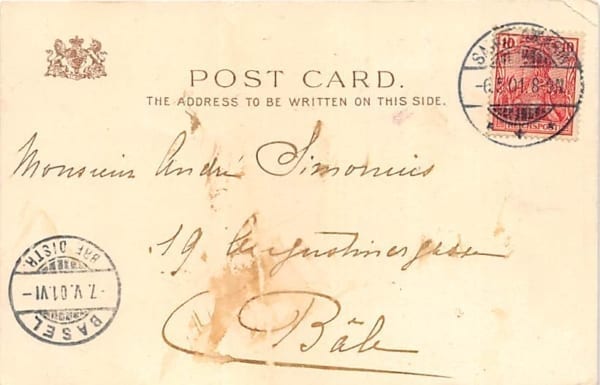 POST CARD.
THE ADDRESS TO BE WRITTEN ON THIS SIDE.
10 10
REICHSPOST
-6.5.01.8-9N.
Monsieur André Simonius
19 Augustinergasse
Bâle
BRF. DISTR.
-7.V.01.VI-
BASEL